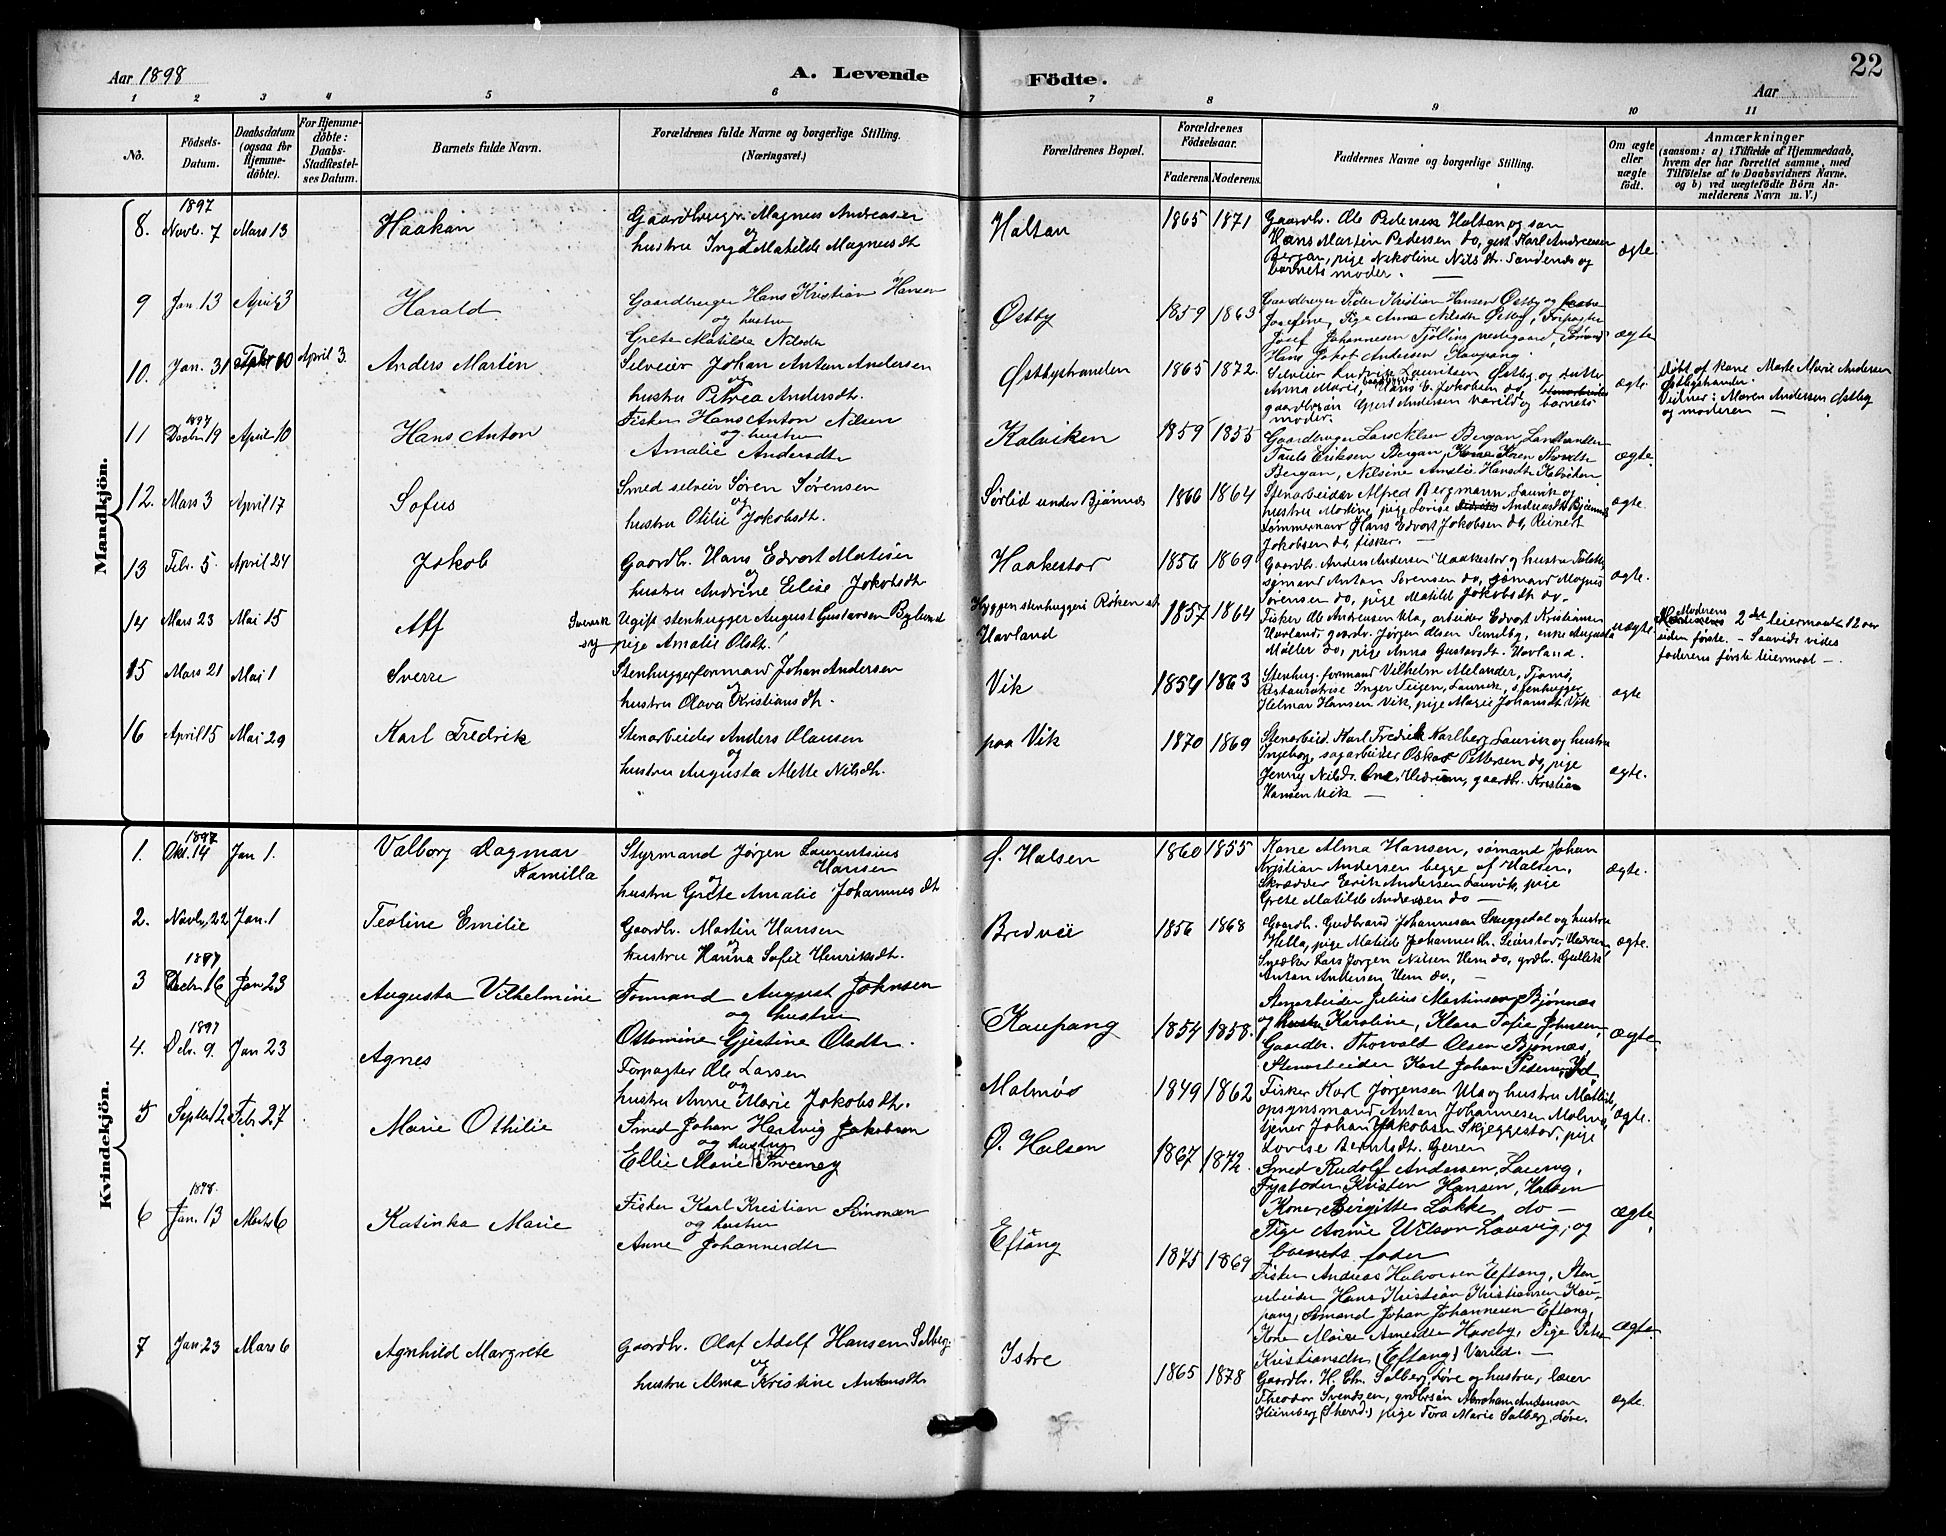 Aar 1898
A. Levende
Födte.
22
Aar
1 2 3 4 5 6 7 8 9 10 11
No.
Födsels-
Datum.
Daabsdatum
(ogsaa for
Hjemme-
döbte).
For Hjemme-
döbte:
Daabs-
Stadfæstel-
ses Datum.
Barnets fulde Navn.
Forældrenes fulde Navne og borgerlige Stilling.
(Næringsvei.)
Forældrenes Bopæl.
Forældrenes
Födselsaar.
Faderens. Moderens.
Faddernes Navne og borgerlige Stilling.
Om ægte
eller
uægte
födt.
Anmærkninger
(saasom: a) i Tilfælde af Hjemmedaab,
hvem der har forrettet samme, med
Tilföielse af to Daabsvidners Navne.
og b) ved uægtefödte Börn An-
melderens Navn m. V.)
Mandkjön.
8. 1897 Novb. 7 Mars 13 Haakan
Gaardbruger Magnus Andreasen
og
hustru Inga Matilde Magnusdt
Holtan 1865 1871
Gaardbr. Ole Pedersen Holtan og søn
Hans Martin Pedersen do, gst. Karl Andreasen
Bergan, pige Nikoline Nilsdtr. Sandenæs og
barnets moder. —
ægte.
9 Jan 13 April 3 Harald
Gaardbruger Hans Kristian Hansen
og hustru
Grete Matilde Nilsdt
Østby 1859 1863
Gaardbruger Peder Kristian Hansen Østby og
Josefine, Pige Anna Nilsdt Østby, Forpagter
Josef Johannesen Tjølling prestegaard, Sømand
Hans Jakob Andersen Kaupang.
ægte
10. Jan. 31 Febr 10 April 3. Anders Martin
Selveier Johan Anton Andersen
og
hustru Petrea Andersdt.
Østbystranden 1865 1872.
Selveier Ludvig Lauritsen Østby og datter
Anna Marie, Hans E. Jakobsen do,
gaardbrsøn Gjert Andersen Varild og barnets
moder.
ægte.
döbt af kone Marte Marie Andersen
Østbystranden.
Vidner: Maren Andersen Østby
og moderen —
11 1897 Decbr 19 April 10 Hans Anton
Fisker Hans Anton Nilsen
og hustru
Amalie Andersdt
Kalviken 1859 1855
Gaardbruger Lars Nilsen Bergan, Landhandler
Pauls Eriksen Bergan, Kone Karen
Bergan, Nilsine Amalie Hansdt Kalviken
ægte.
12. Mars 3 April 17 Sofus
Smed selveier Søren Sørensen
og
hustru Otilie Jokobsdt.
Sørlid under Bjønnes 1866 1864
Stenarbeider Alfred Bergmann Laurvik og
hustru Martine, pige Lovise Andreasdt Bjønnes
tømmermand Hans Edvart Jokobsen do, Reinert
Jokobsen do, fisker. —
ægte.
13 Febr. 5. April 24 Jokob
Gaardb. Hans Edvart Matisen
og
hustru Andrine Elise Jokobsdt
Haakestad 1856 1869
Gaardb. Anders Andersen Haakestad og hustru
sømand Anton Sørensen do, sømand Magnus
Sørensen do, pige Matild Jokobsdt do —
ægte.
14 Mars 23 Mai 15 Alf
Svensk Ugift stenhugger August Gustavsen Bylund
pige Amalie Olsdt.
Hyggen stenhuggeri Røken st.
Havland
1857 1864
Fisker Ole Andreasen Ula, arbeider Edvart Kristiansen
Havland, gaardr. Jørgen Olsen Sendby, enke Augusta
Møller do, pige Anna Gustavdt. Havland.
uægte.
Moderens 2det leiermaal 12 aar
siden første. – Saavidt vides
faderens første leiermaal —.
15 Mars 21 Mai 1 Sverre
Stenhuggerformand Johan Andersen
og
hustru Olava Kristiansdt.
Vik 1854 1863
Stenhug. formand Vilhelm Melander, Tjømø,
Restauratrise Inger Teigen, Laurvik, stenhugger
Helmar Hansen Vik, pige Marie Johansdt Vik
ægte
16 April 15 Mai 29 Karl Fredrik
Stenarbeider Anders Olausen
og
hustru Augusta Mette Nilsdt.
paa Vik 1870 1869
Stenarbeid. Karl Fredrik Karlberg Laurvik og hustru
Ingeborg, sagarbeider Oskar Pettersen do, pige
Jenny Nilsdr. Hedrum, gaardb. Kristian
Hansen Vik —
ægte.
Kvindekjön.
1. 1897 Okt. 14 Jan 1. Valborg Dagmar
Kamilla
Styrmand Jørgen Laurentsius
Hansen
og
hustru Grete Amalie Johannesdt
Ø. Halsen 1860 1855
Kone Alma Hansen, sømand Johan
Kristian Andersen begge af Halsen,
Skrædder Erik Andersen Laurvik, pige
Grete Matilde Andersen do —
ægte.
2. Novbr. 22 Jan. 1 Teoline Emilie
Gaardb. Martin Hansen
og
hustru Hanna Sofie Henriksdt.
Bredvei 1856 1868
Gaardb. Gudbrand Johannesen Skuggedal og hustru
Hella, pige Matilde Johannesdtr. Seierstad, Hedrum,
Snedker Lars Jørgen Nilsen Hem do, grdbr. Gulliks
Anton Andersen Hem do. —
ægte.
3 1897 Decbr 16 Jan 23 Augusta Vilhelmine
Formand August Johnsen
og hustru
Ottomine Gjertine Olsdtr.
Kaupang 1854 1858.
Stenarbeider Julius Martinsen Bjønnes
og hustru Karoline, Klara Sofie Johnsen,
Gaardbr. Thorvald Olsen Bjønnes,
Stenarbeider Karl Johan Pedersen
ægte.
4. 1897 Debr. 9. Jan 23 Agnes
Forpagter Ole Larsen
og
hustru Anne Marie Jokobsdt.
Malmøe 1849 1862
Fisker Karl Jørgensen Ula og hustru Matilde,
opsynsmand Anton Johannesen Malmø,
tjener Johan Jakobsen Skjeggestad, pige
Lovise Berntsdt.
ægte.
5 Septbr 12 Febr 27 Marie Othilie
Smed Johan Hartvig Jakobsen
og hustru
Ellie Marie
Ø. Halsen 1867 1872.
Smed Rudolf Andersen, Laurvig,
Fyrbøder Kristen Hansen, Halsen
Kone Birgitte Løkke do —
Pige Annie Wilson Laurvig, og
barnets fader
ægte
6 1898 Jan. 13 Marts 6 Katinka Marie
Fisker Karl Kristian Simonsen
og hustru
Anne Johannesdtr
Eftang 1875 1869
Fisker Andreas Halvorsen Eftang, Sten-
arbeider Hans Kristian Kristiansen Kau-
pang, Sømand Johan Johannesen Eftang,
Kone Maise Haseby, Pige
Kristiansdtr (Eftang) Varild. —
ægte
7 Jan 23 Mars 6 Agnhild Margrete
Gaardb. Olaf Adolf Hansen Solberg
og
hustru Alma Kristine Antonsdtr
Istre 1865 1878
Gaardb. H. Chr. Solberg, Løve og hustru, lærer
Theodor Svendsen, grdbrsøn Abraham Andersen
Hiemberg (Sherrd.) pige Tora Marie Solberg, Løve.
ægte.